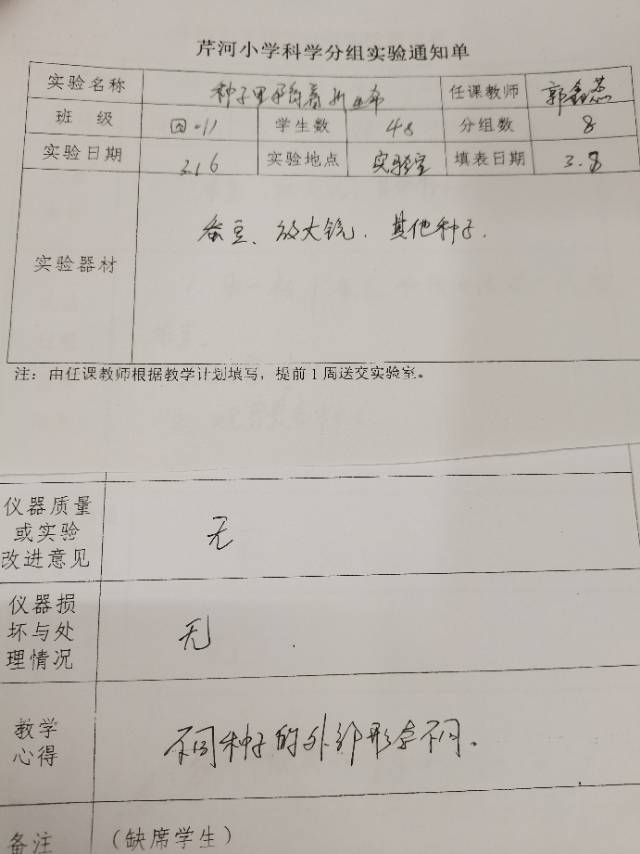 芹河小学科学分组实验通知单
实验名称 种子里孕育着新生命 任课教师 郭鑫蕊
班 级 四·11 学生数 48 分组数 8
实验日期 3.16 实验地点 实验室 填表日期 3.8
实验器材 蚕豆、放大镜、其他种子.
注：由任课教师根据教学计划填写，提前1周送交实验室。
仪器质量
或实验
改进意见 无
仪器损
坏与处
理情况 无
教学
心得 不同种子的外部形态不同.
备注 （缺席学生）